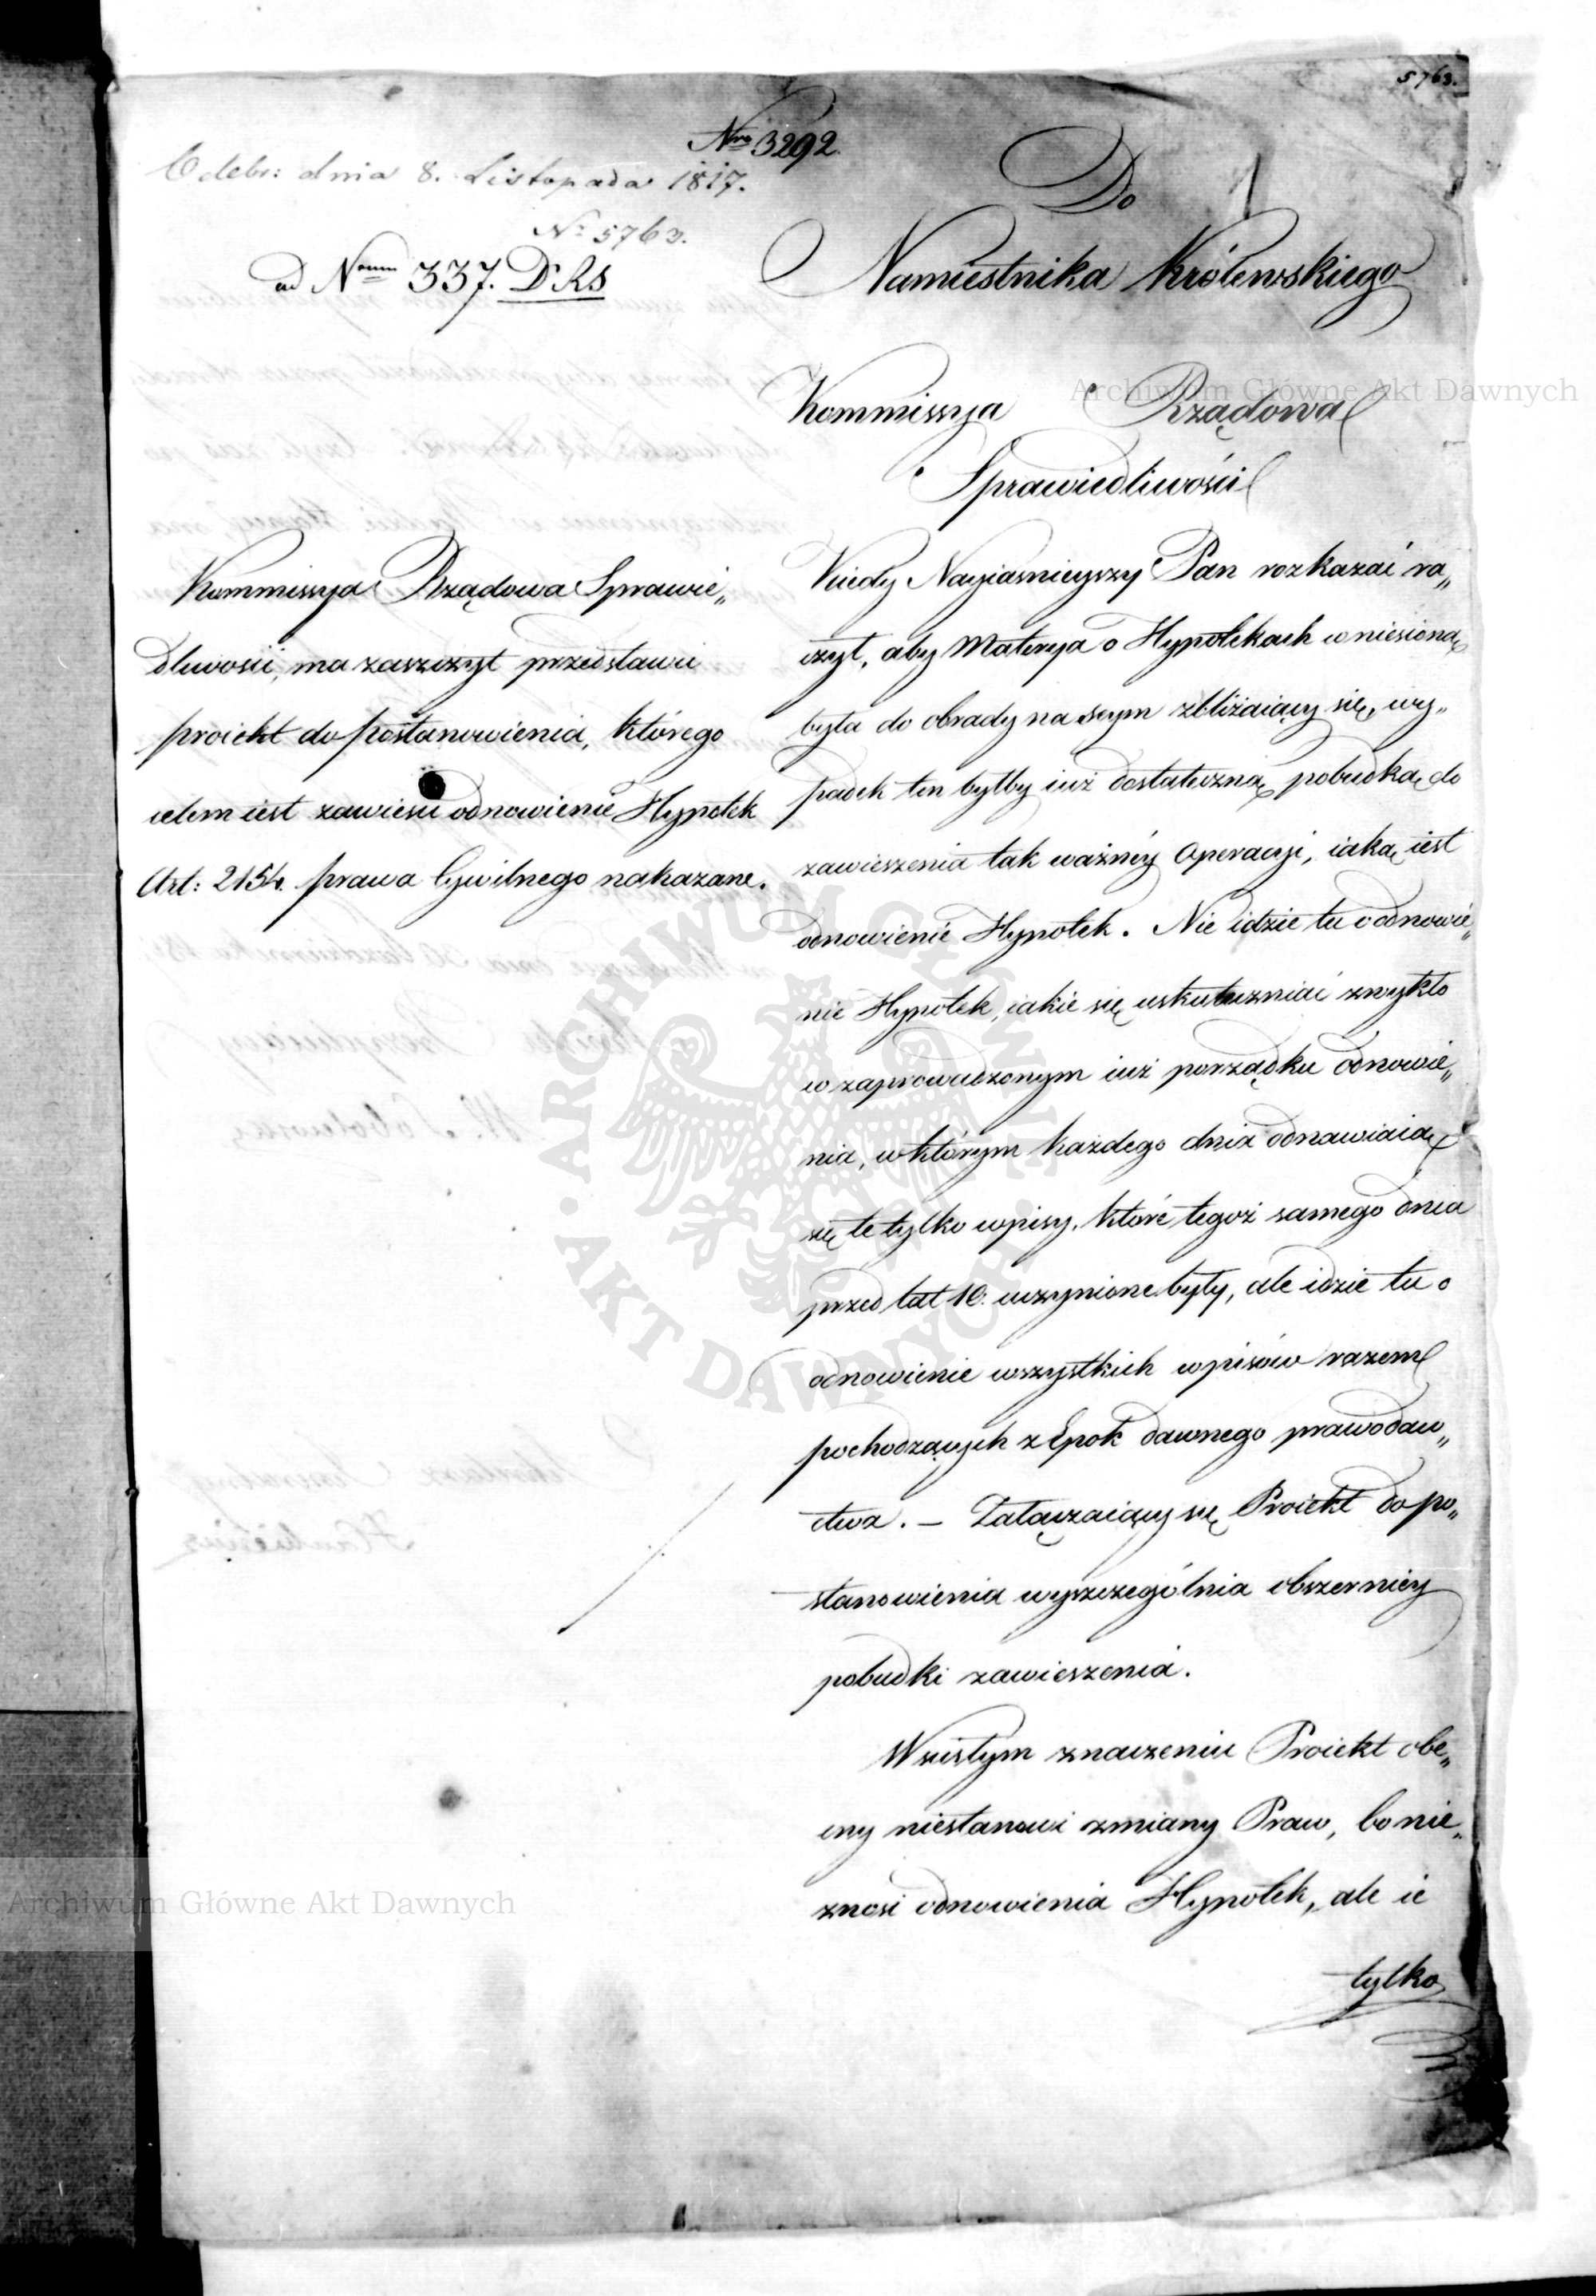 5763.
Nro 3292.
Odebr: dnia 8. Listopada 1817.
Nr 5763.
ad Num 337. D.R.S
Do
Namiestnika Królewskiego
Kommissya Rządowa
Sprawiedliwości
Kommissya Rządowa Sprawie„
dliwości, ma zaszczyt przedstawić
proiekt do postanowienia, którego
celem iest zawiesić odnowienie Hypotek
Art: 2154. prawa Cywilnego nakazane.
Kiedy Nayiasnieyszy Pan rozkazać ra„
czył, aby Materya o Hypotekach wniesioną
była do obrady na seym zbliżaiący się, wy„
padek ten byłby iuż dostateczną pobudką do
zawieszenia tak ważnéy Operacyi, iaką iest
odnowienie Hypotek. Nie idzie tu o odnowie„
nie Hypotek, iakie się uskuteczniać zwykło
w zaprowadzonym iuż porządku odnowie„
nia, w którym każdego dnia odnawiaią
się te tylko wpisy, które tegoż samego dnia
przed lat 10. uczynione były, ale idzie tu o
odnowienie wszystkich wpisów razem
pochodzących z Epok dawnego prawodaw„
stwa. – Załączaiący się Proiekt do po„
stanowienia wyszczególnia obszerniey
pobudki zawieszenia.
W scisłym znaczeniu Proiekt obe„
cny niestanowi zmiany Praw, bo nie„
znosi odnowienia Hypotek, ale ie
tylko
Archiwum Główne Akt Dawnych
ARCHIWUM GŁÓWNE AKT DAWNYCH
Archiwum Główne Akt Dawnych